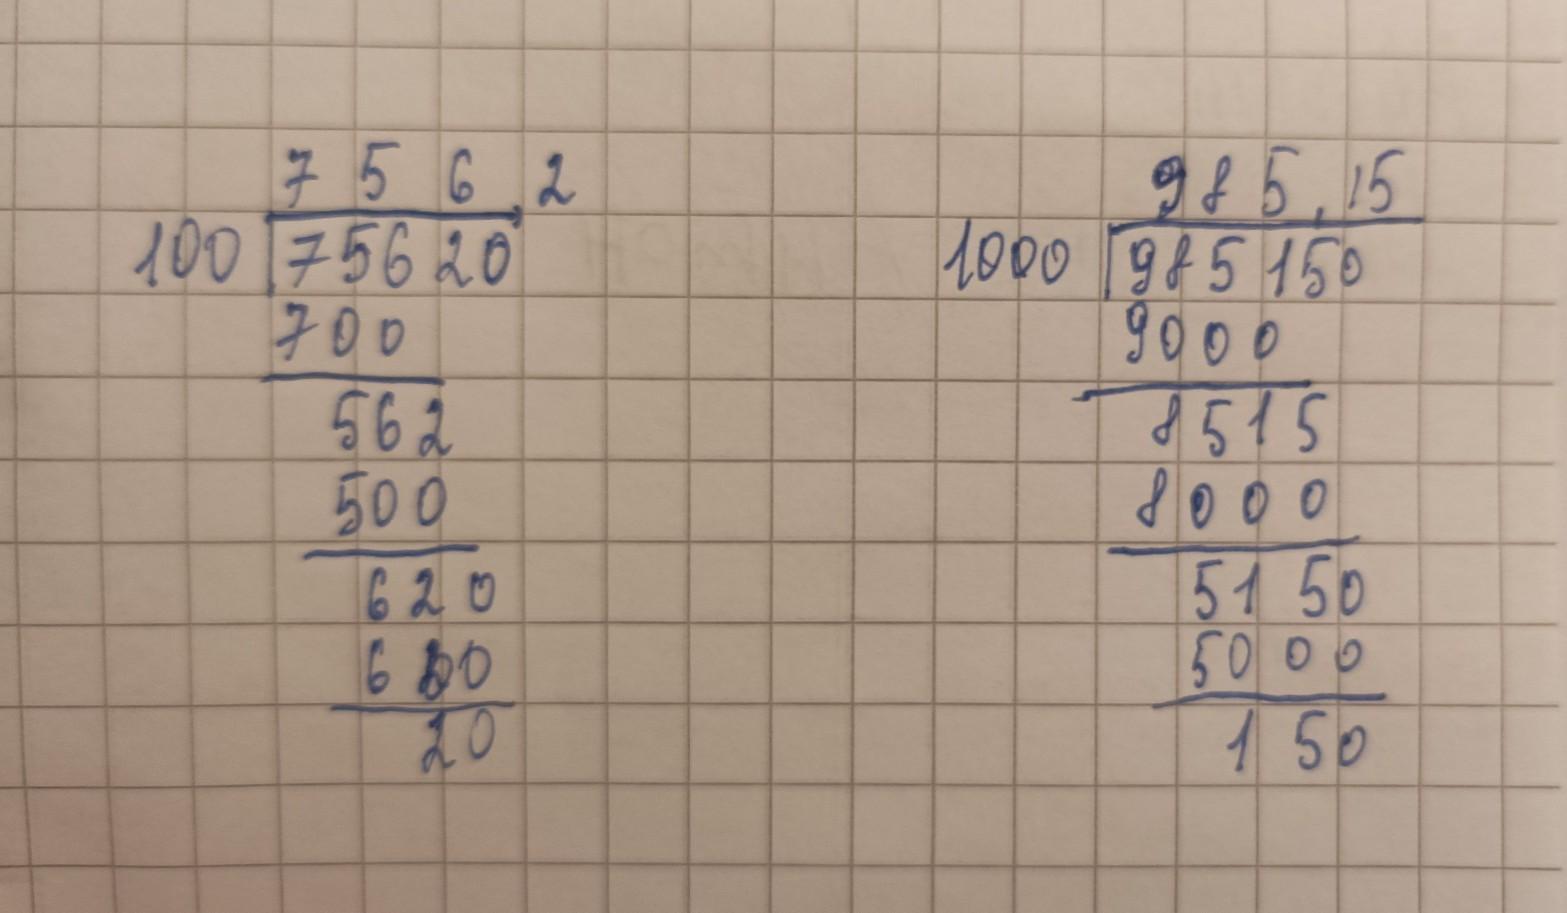 7 5 6,2
100 75620
700
562
500
620
600
20
985,15
1000 985150
9000
8515
8000
5150
5000
150